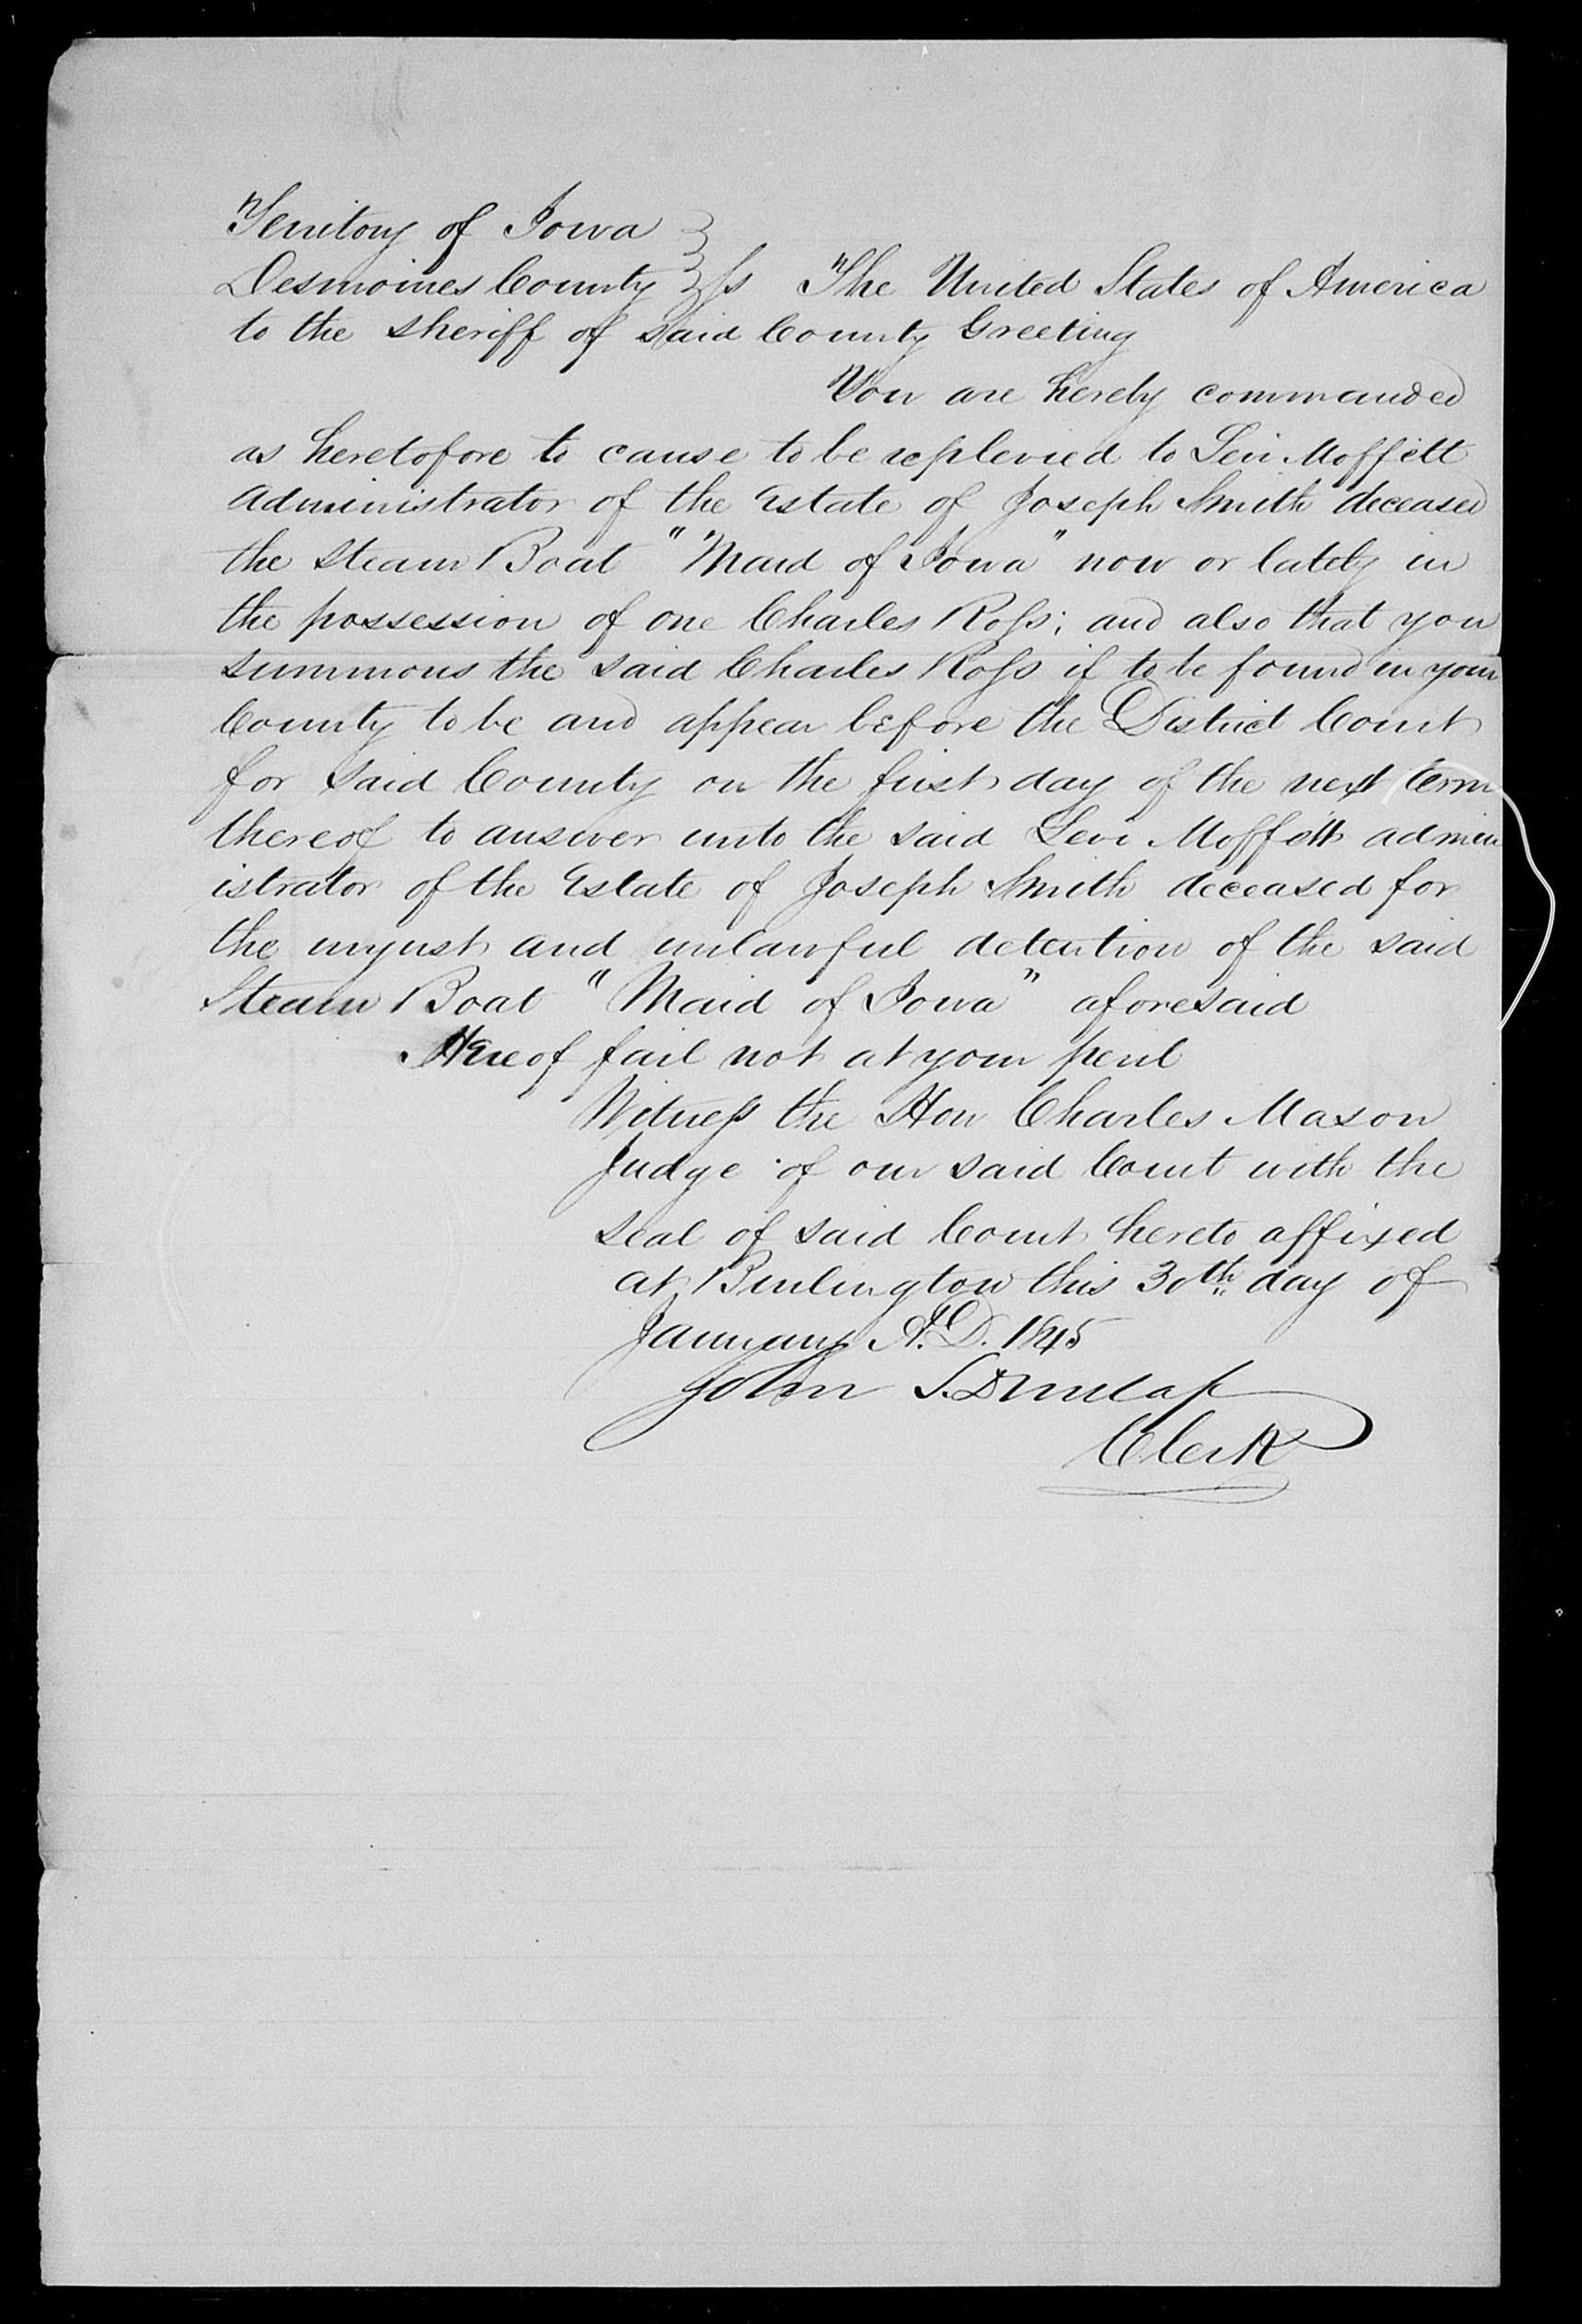 Territory of Iowa }
Desmoines County } ss The United States of America
to the sheriff of said County Greeting
You are hereby commanded
as heretofore to cause to be replevied to Levi Moffett
administrator of the Estate of Joseph Smith deceased
the Steam Boat "Maid of Iowa" now or lately in
the possession of one Charles Ross; and also that you
summons the said Charles Ross if to be found in your
County to be and appear before the District Court
for said County on the first day of the next term
thereof to answer unto the said Levi Moffett admin
istrator of the Estate of Joseph Smith deceased for
the unjust and unlawful detention of the said
Steam Boat "Maid of Iowa" aforesaid
Hereof fail not at your peril
Witness the Hon Charles Mason
Judge of our said Court with the
seal of said Court hereto affixed
at Burlington this 30th day of
January A.D. 1845
John S. Dunlap
Clerk